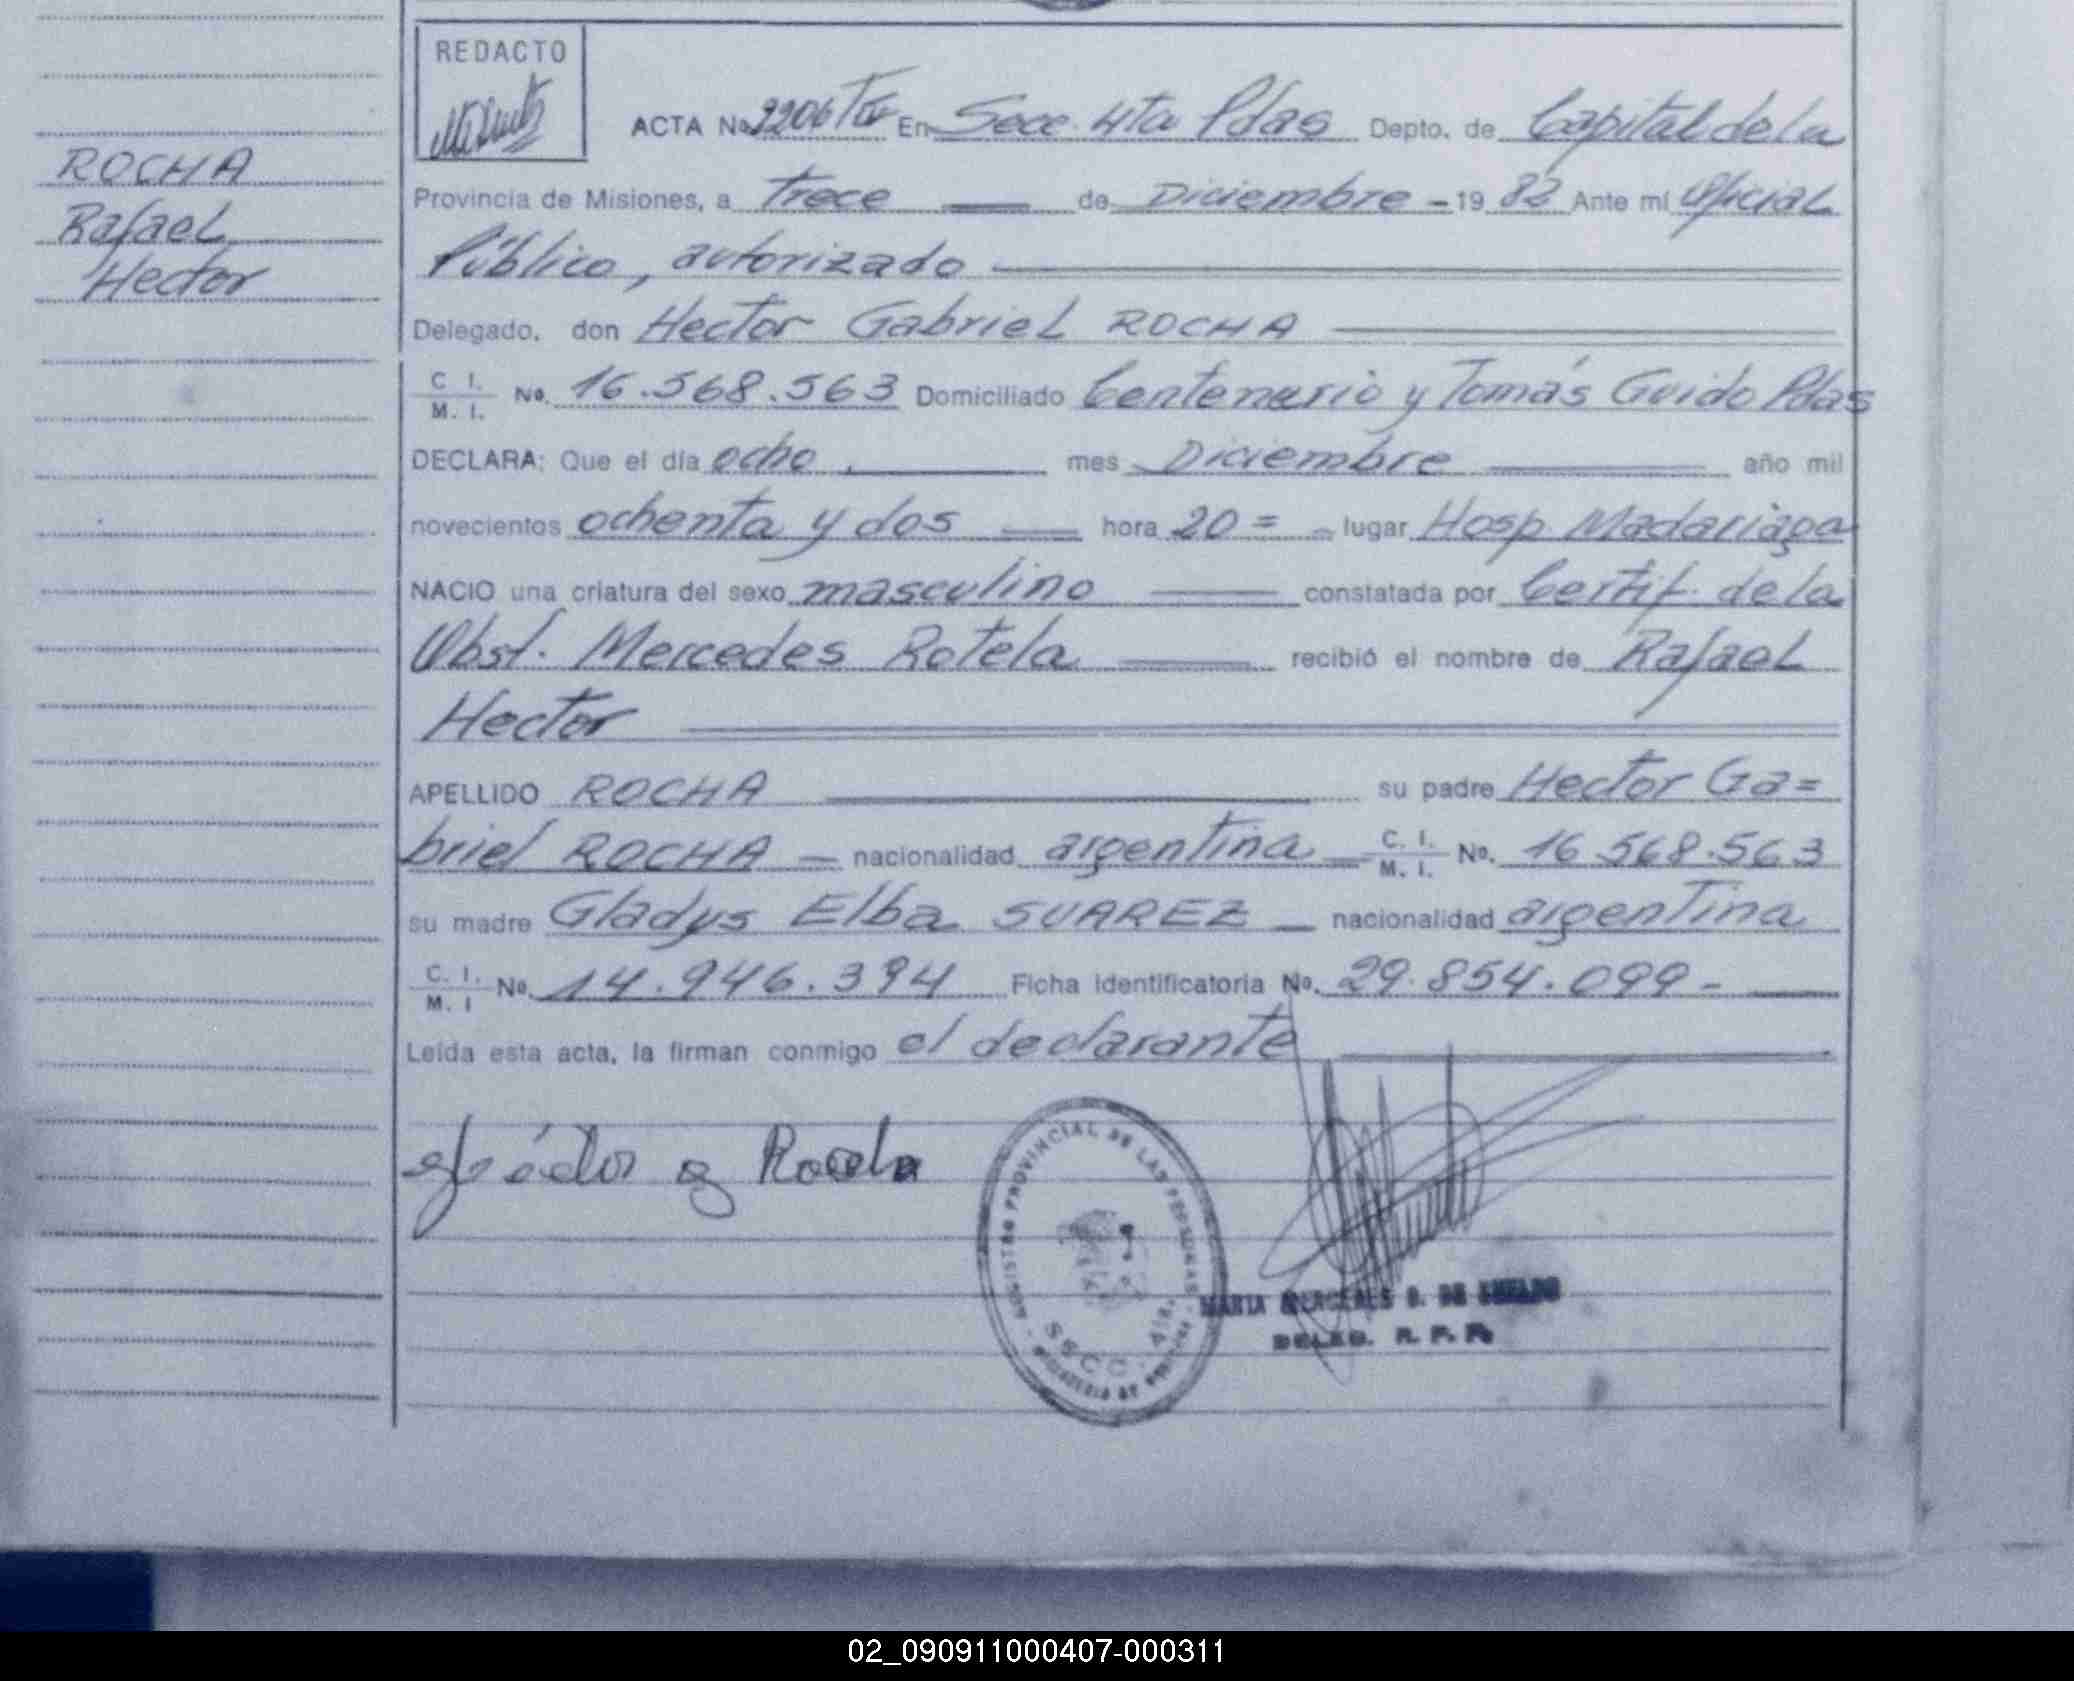 REDACTO
ACTA No 2206 En Secc. 4ta Pdas Depto. de Capital de la
ROCHA
Rafael
Hector
Provincia de Misiones, a Trece de Diciembre - 19 82 Ante mí Oficial
Público, autorizado
Delegado, don Hector Gabriel ROCHA
C. I. / M. I. No. 16.568.563 Domiciliado Centenario y Tomás Guido Pdas
DECLARA: Que el día ocho mes Diciembre año mil
novecientos ochenta y dos hora 20 = lugar Hosp. Madariaga
NACIO una criatura del sexo masculino constatada por Certif. de la
Obst. Mercedes Rotela recibió el nombre de Rafael
Hector
APELLIDO ROCHA su padre Hector Ga=
briel ROCHA nacionalidad argentina C. I. / M. I. No. 16.568.563
su madre Gladys Elba SUAREZ nacionalidad argentina
C. I. / M. I No. 14.946.394 Ficha identificatoria No. 29.854.099 -
Leída esta acta, la firman conmigo el declarante
G Rocha
REGISTRO PROVINCIAL DE LAS PERSONAS
S S C C 4ta.
MARIA MERCEDES DE
DELEG. R. P. P.
02_090911000407-000311